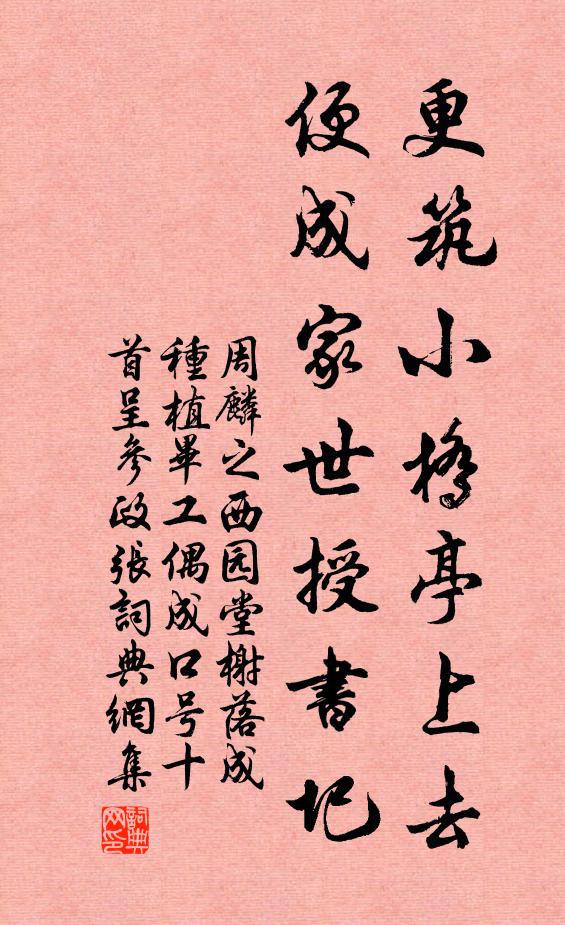 更筑小橋亭上去
便成家世授書圯
周麟之西园堂榭落成
種植畢工偶成口号十
首呈參政張詞典網集
詞典网印